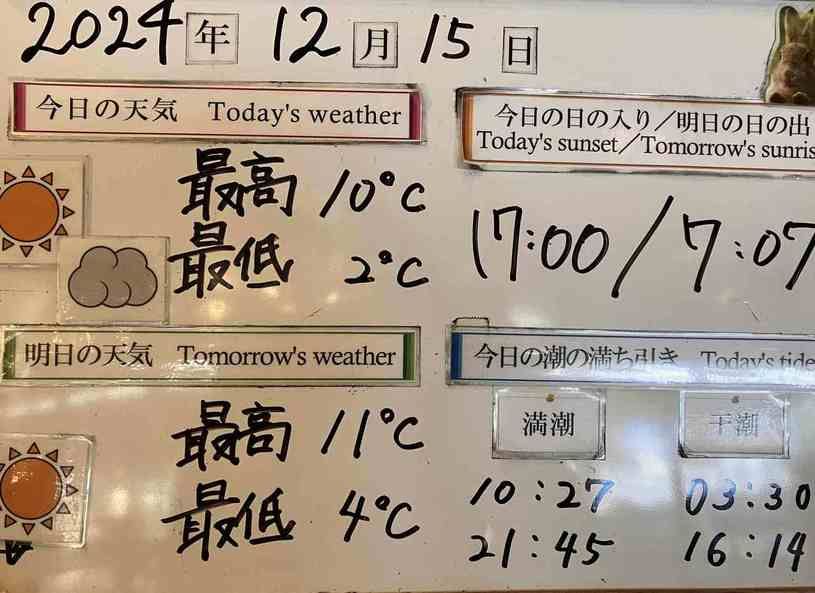 2024年 12月 15日
今日の天気 Today's weather
最高 10℃
最低 2℃
今日の日の入り／明日の日の出
Today's sunset／Tomorrow's sunris
17:00 / 7:07
明日の天気 Tomorrow's weather
最高 11℃
最低 4℃
今日の潮の満ち引き Today's tide
満潮 干潮
10:27 03:30
21:45 16:14